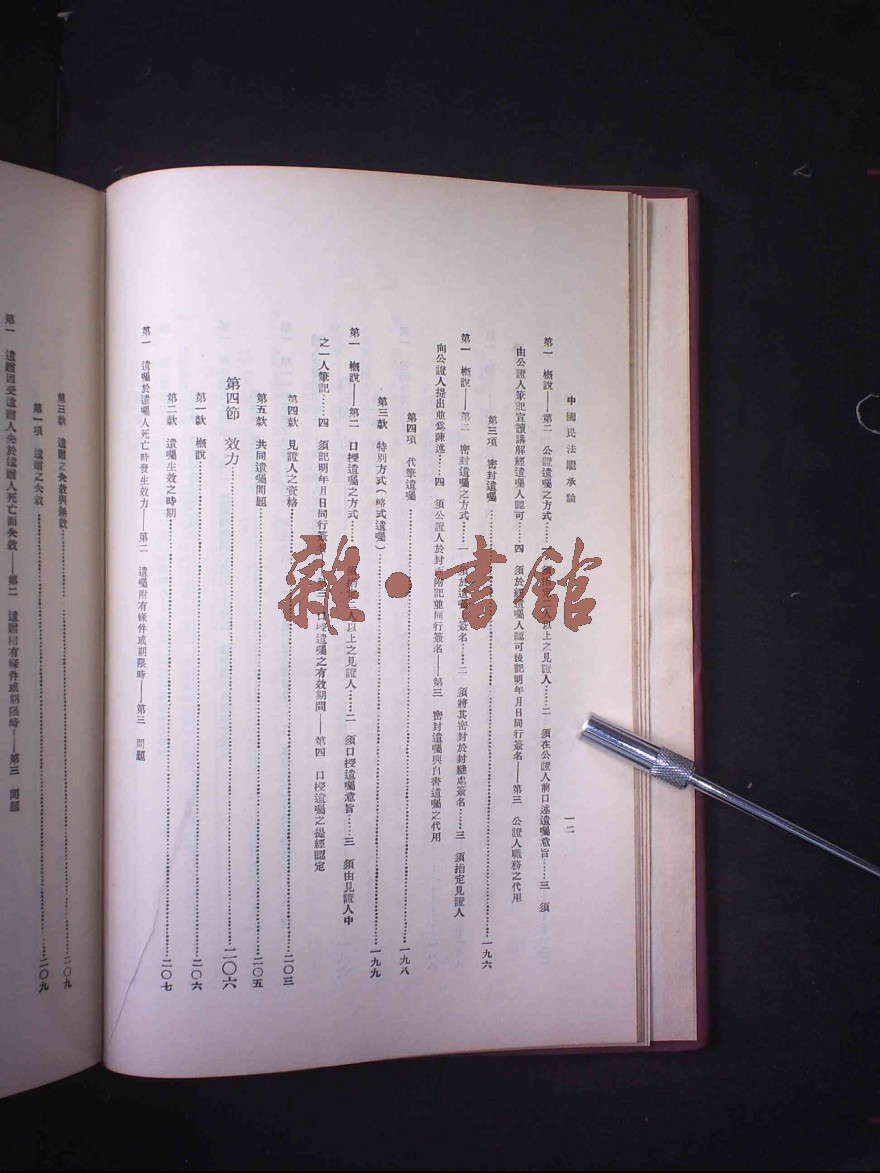 中國民法繼承論
一二
第一 概說——第二 公證遺囑之方式……一 須 人以上之見證人……二 須在公證人前口述遺囑意旨……三 須
由公證人筆記宣讀講解經遺囑人認可……四 須於經遺囑人認可後記明年月日同行簽名——第三 公證人職務之代用
第三項 密封遺囑……一九六
第一 概說——第二 密封遺囑之方式……一 須於遺囑上簽名……二 須將其密封於封縫處簽名……三 須指定見證人
向公證人提出並為陳述……四 須公證人於封面附記並同行簽名——第三 密封遺囑與自書遺囑之代用
第四項 代筆遺囑……一九八
第三款 特別方式(略式遺囑)……一九九
第一 概說——第二 口授遺囑之方式…… 人以上之見證人……二 須口授遺囑意旨……三 須由見證人中
之一人筆記……四 須記明年月日同行簽名——第三 口授遺囑之有效期間——第四 口授遺囑之提經認定
第四款 見證人之資格……二〇三
第五款 共同遺囑問題……二〇五
第四節 效力……二〇六
第一款 概說……二〇六
第二款 遺囑生效之時期……二〇七
第一 遺囑於遺囑人死亡時發生效力——第二 遺囑附有條件或期限時——第三 問題
第三款 遺贈之失效與無效……二〇九
第一項 遺贈之失效……二〇九
第一 遺贈因受遺贈人先於遺囑人死亡而失效——第二 遺贈附有條件或期限時——第三 問題
雜·書館